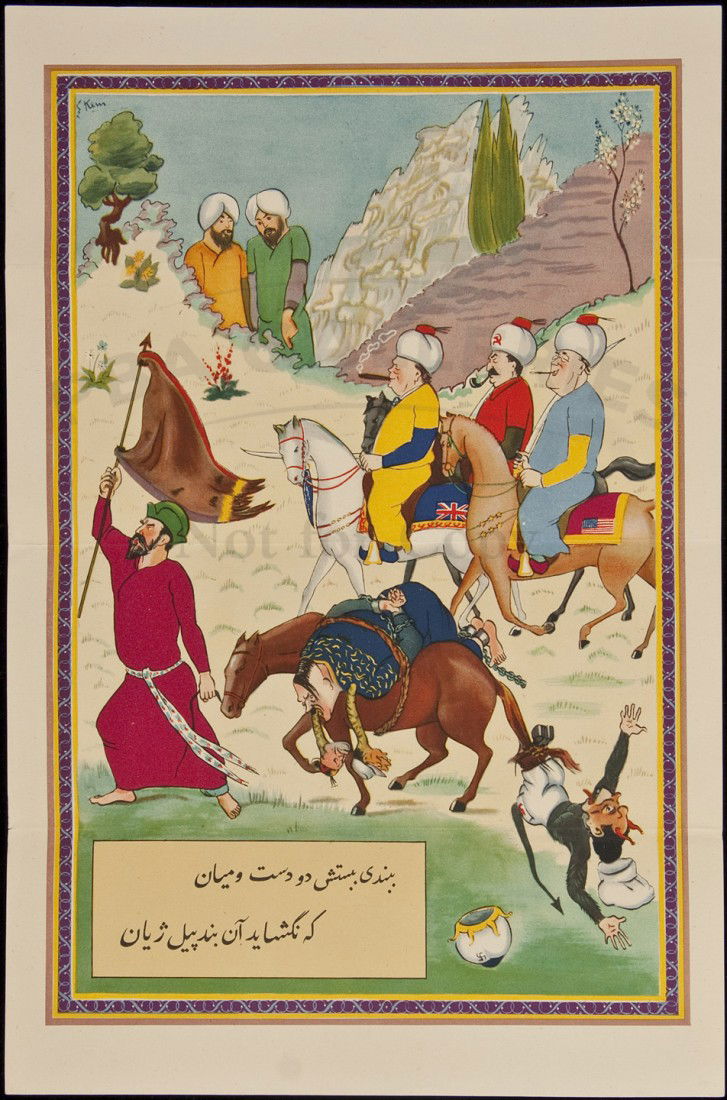 Kem
ببندی ببستش دو دست و میان
که نگشاید آن بند پیل ژیان
Not for Copy